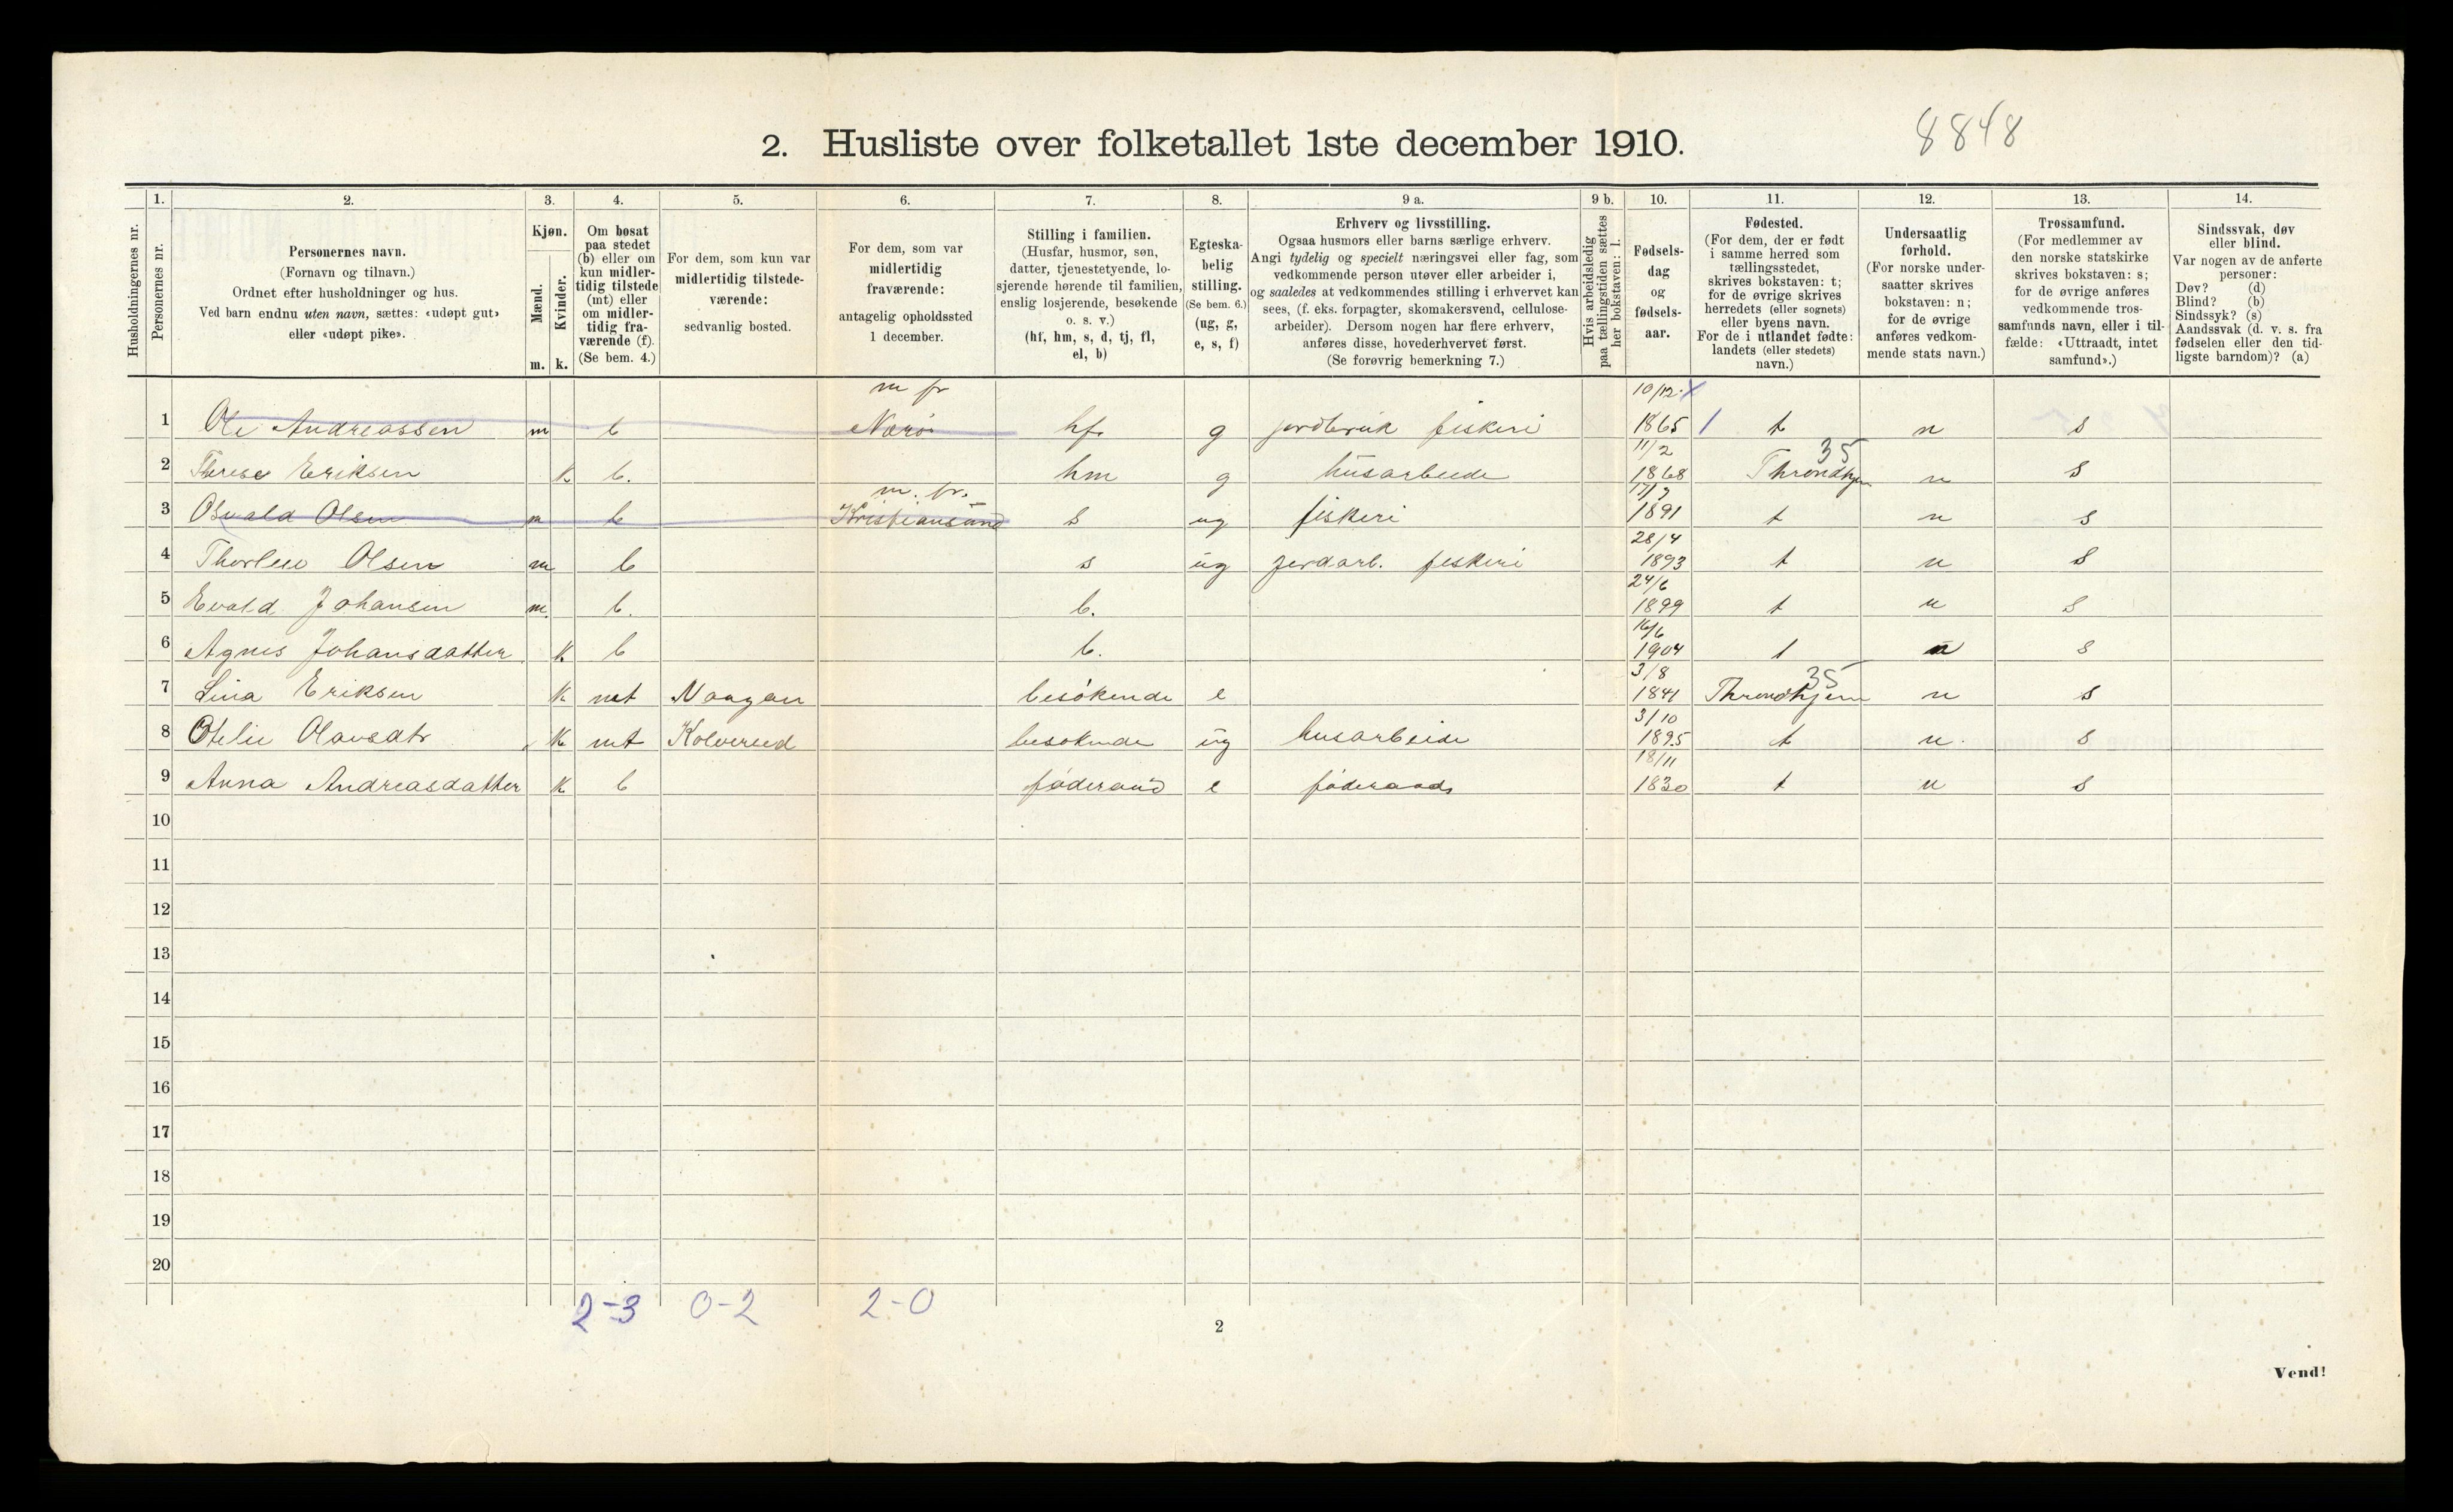 8848
2. Husliste over folketallet 1ste december 1910.
1. 2. 3. 4. 5. 6. 7. 8. 9 a. 9 b. 10. 11. 12. 13. 14.
Husholdningernes nr.
Personernes nr.
Personernes navn.
(Fornavn og tilnavn.)
Ordnet efter husholdninger og hus.
Ved barn endnu uten navn, sættes: «udøpt gut»
eller «udøpt pike».
Kjøn.
Mænd.
Kvinder.
m. k.
Om bosat
paa stedet
(b) eller om
kun midler-
tidig tilstede
(mt) eller
om midler-
tidig fra-
værende (f).
(Se bem. 4.)
For dem, som kun var
midlertidig tilstede-
værende:
sedvanlig bosted.
For dem, som var
midlertidig
fraværende:
antagelig opholdssted
1 december.
Stilling i familien.
(Husfar, husmor, søn,
datter, tjenestetyende, lo-
sjerende hørende til familien,
enslig losjerende, besøkende
o. s. v.)
(hf, hm, s, d, tj, fl,
el, b)
Egteska-
belig
stilling.
(Se bem. 6.)
(ug, g,
e, s, f)
Erhverv og livsstilling.
Ogsaa husmors eller barns særlige erhverv.
Angi tydelig og specielt næringsvei eller fag, som
vedkommende person utøver eller arbeider i,
og saaledes at vedkommendes stilling i erhvervet kan
sees, (f. eks. forpagter, skomakersvend, cellulose-
arbeider). Dersom nogen har flere erhverv,
anføres disse, hovederhvervet først.
(Se forøvrig bemerkning 7.)
Hvis arbeidsledig
paa tællingstiden sættes
her bokstaven: l.
Fødsels-
dag
og
fødsels-
aar.
Fødested.
(For dem, der er født
i samme herred som
tællingsstedet,
skrives bokstaven: t;
for de øvrige skrives
herredets (eller sognets)
eller byens navn.
For de i utlandet fødte:
landets (eller stedets)
navn.)
Undersaatlig
forhold.
(For norske under-
saatter skrives
bokstaven: n;
for de øvrige
anføres vedkom-
mende stats navn.)
Trossamfund.
(For medlemmer av
den norske statskirke
skrives bokstaven: s;
for de øvrige anføres
vedkommende tros-
samfunds navn, eller i til-
fælde: «Uttraadt, intet
samfund».)
Sindssvak, døv
eller blind.
Var nogen av de anførte
personer:
Døv? (d)
Blind? (b)
Sindssyk? (s)
Aandssvak (d. v. s. fra
fødselen eller den tid-
ligste barndom)? (a)
m fr 10/12
1 Ole Andreassen m b Nærö hf. g jordbruk fiskeri 1865 t n s
11/2 35
2 Therese Eriksen k b. hm g husarbeide 1868 Throndhjem n s
m. fr. 17/7
3 Osvald Olsen m b Kristiansund s ug fiskeri 1891 t n s
28/4
4 Thorleif Olsen m b s ug jordarb. fiskeri 1893 t n s
24/6
5 Evald Johansen m. b. b. 1899 t n s
16/6
6 Agnes Johansdatter k. b b. 1904 t n s
3/8 35
7 Lina Eriksen k mt besökende e 1841 Throndhjem n s
3/10
8 Otelie Olausdtr k mt Kolvereid besökende ug husarbeide 1895 t n. s
18/11
9 Anna Andreasdatter k b föderaad e föderaads 1830 t n s
10
11
12
13
14
15
16
17
18
19
20
2-3 0-2 2-0
2
Vend!